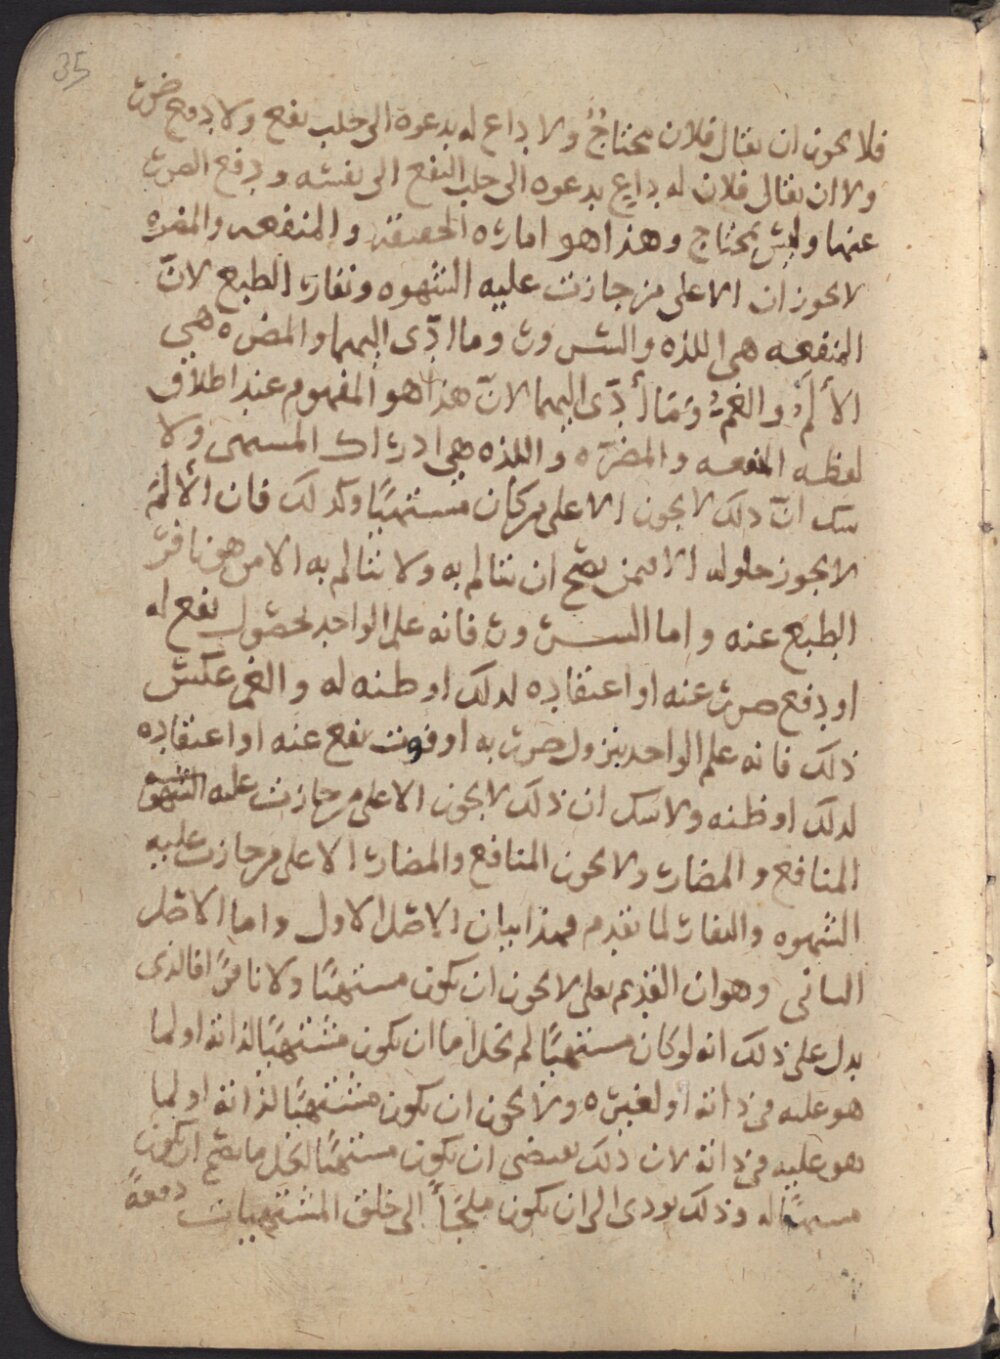 35
فلا يجوز ان يقال فلان محتاجٌ ولا داع له يدعوه الى جلب نفع ولا دفع ضرر
ولا ان يقال فلان له داعٍ يدعوه الى جلب النفع الى نفسه و دفع الضرر
عنها وليس بمحتاج وهذا هو امارة الحقيقة والمنفعه والمضره
لا يجوز ان الا على من جازت عليه الشهوه ونفار الطبع لانّ
المنفعه هي اللذه والسرور وما ادّى اليهما والمضره هي
الألمُ والغمُّ وَمَا أدّى اليهما لانّ هذا هو المفهوم عند اطلاق
لفظه المنفعه والمضرّه واللذه هي ادراك المشتهى ولا
شك انّ ذلك لا يجوز الا على من كان مشتهيًا وكذلك فان الألم
لا يجوز حلوله الا فيمن يصح ان يتالم به ولا يتالم به الا من هو نافر
الطبع عنه واما السرور فانه علم الواحد لحصول نفع له
او دفع ضرر عنه او اعتقاده لذلك او ظنه له والغم عكس
ذلك فانه علم الواحد بنزول ضرر به او فوت نفع عنه او اعتقاده
لذلك او ظنه ولا شك ان ذلك لا يجوز الا على من جازت عليه
المنافع والمضار ولا يجوز المنافع والمضار الا على من جازت عليه
الشهوه والنفار لما تقدم فهذا بيان الاصل الاول واما الاصل
الثاني وهو ان القديم تعلى لا يجوز ان يكون مشتهيًا ولا نافرًا فالذى
يدل على ذلك انه لو كان مشتهيًا لم يخل اما ان يكون مشتهيًا لذاته او لما
هو عليه في ذاته او لغيره ولا يجوز ان يكون مشتهيًا لذاته او لما
هو عليه في ذاته لان ذلك يقتضى ان يكون مشتهيًا لكل ما يصح ان يكون
مشتهيًا له وذلك يودى الى ان يكون ملجَأً الى خلق المشتهيات دفعةً